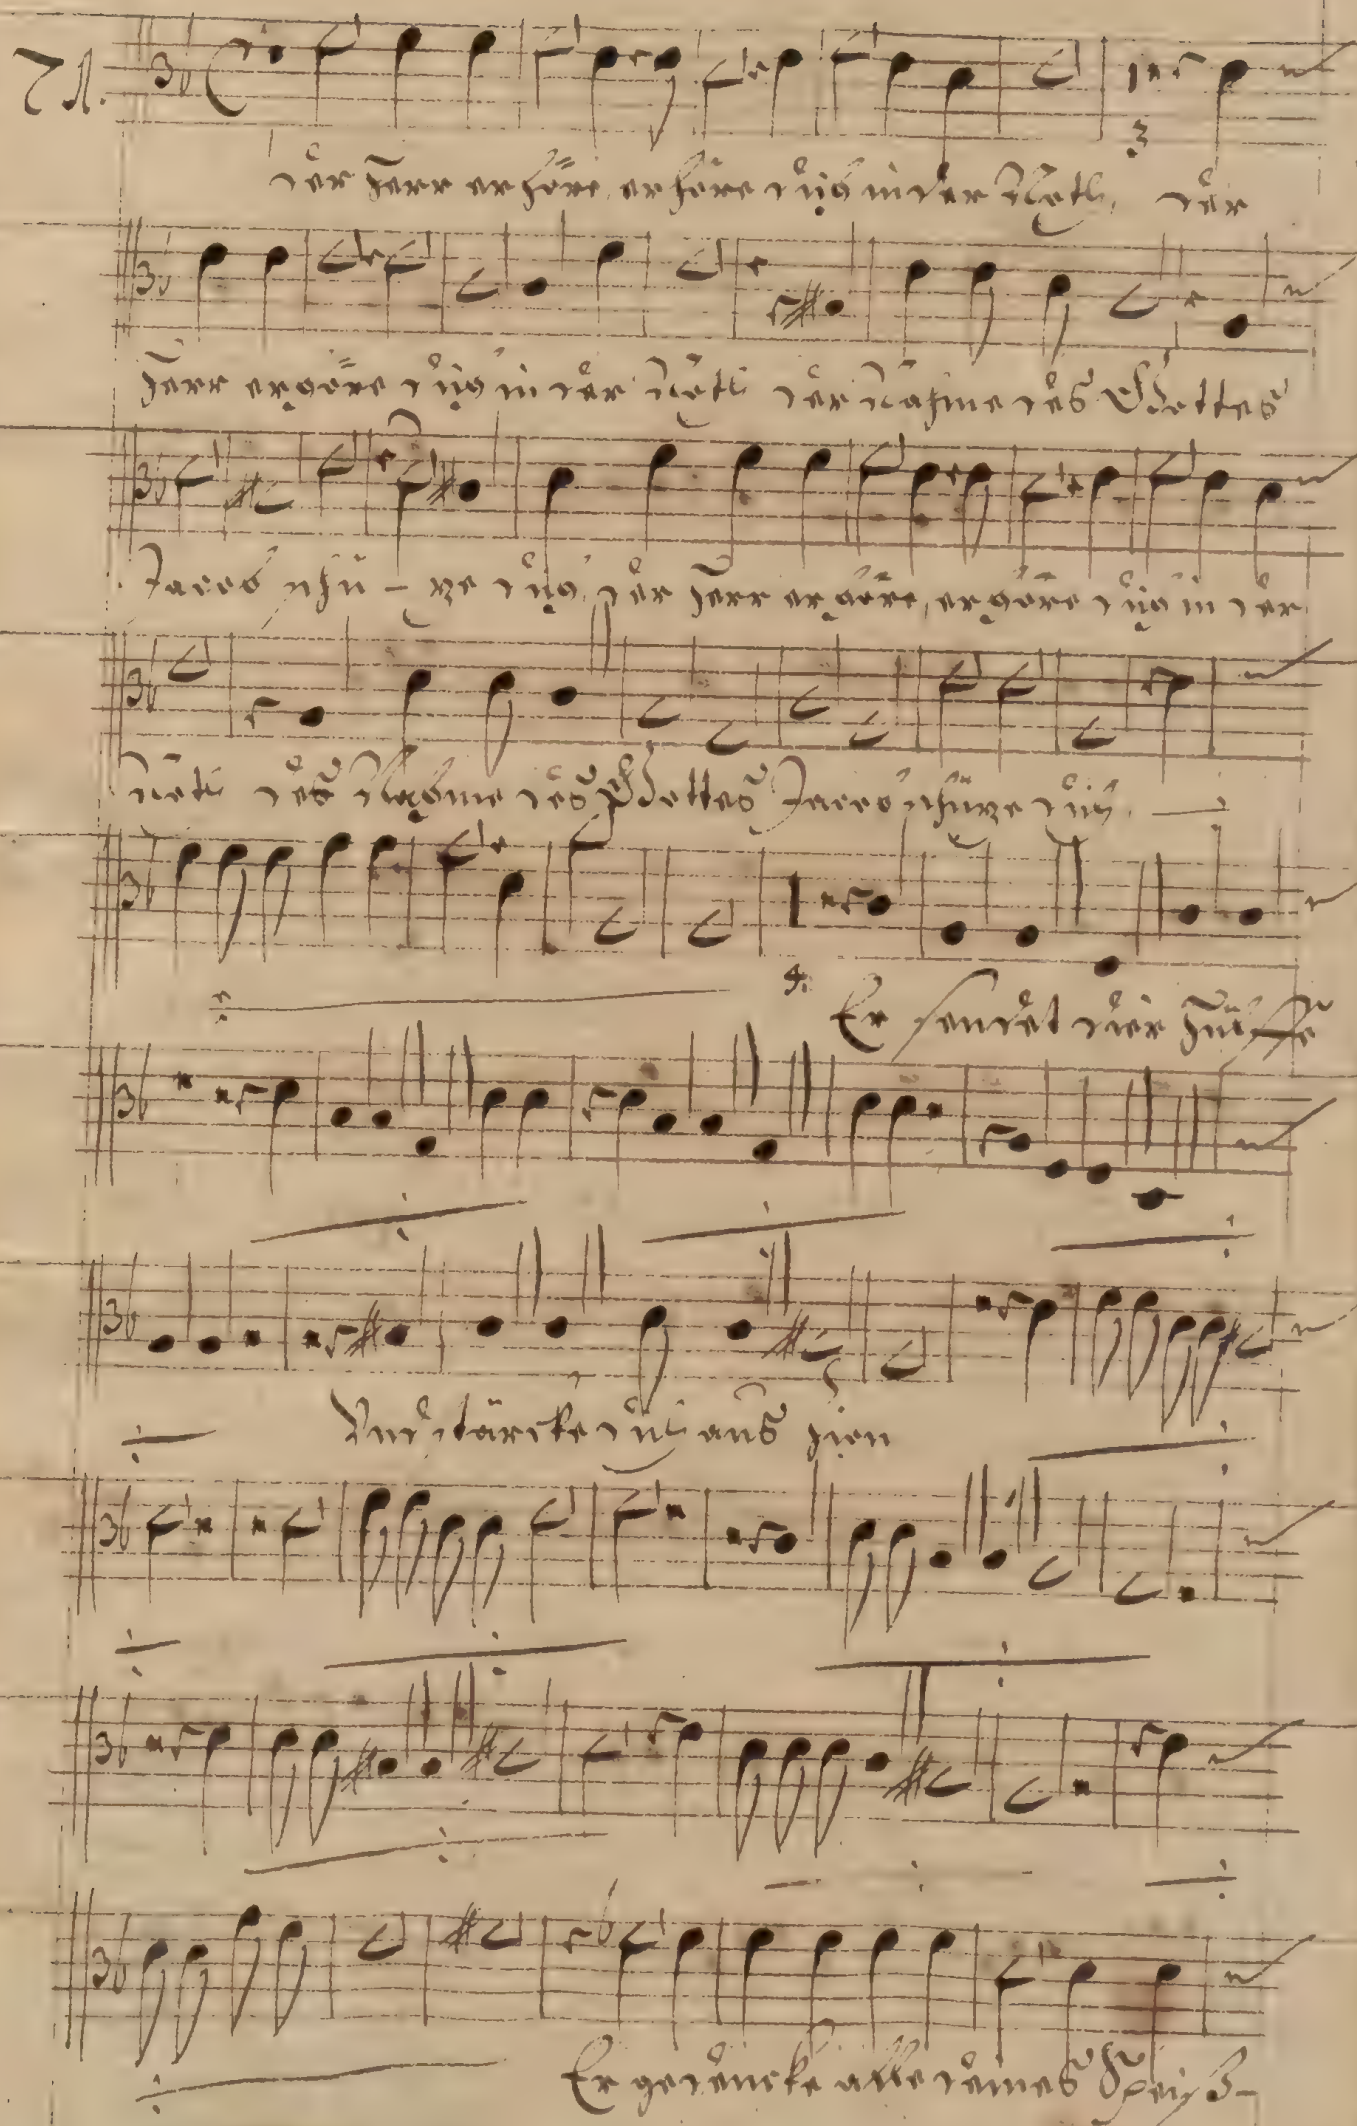 71.
der Herr erhöre, erhöre dich in der Noth, der
3
Herr erhöre dich in der Noth der Nahme des Gottes
Jacob schü - ze dich, der Herr erhöre, erhöre dich in der
Noth des Nahme des Gottes Jacob schüze dich
4. Er sendet dier Hülffe
Und stärcke dich aus Zion
Er gedencke alle deines Speiß-